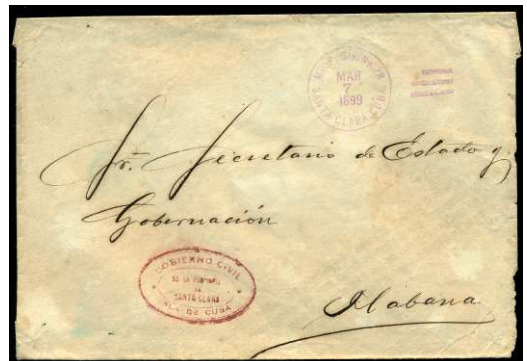 MAR
7
1899
SANTA CLARA CUBA
Sr. Secretario de Estado y
Gobernación
GOBIERNO CIVIL
DE LA PROVINCIA
DE
SANTA CLARA
ISLA DE CUBA
Habana